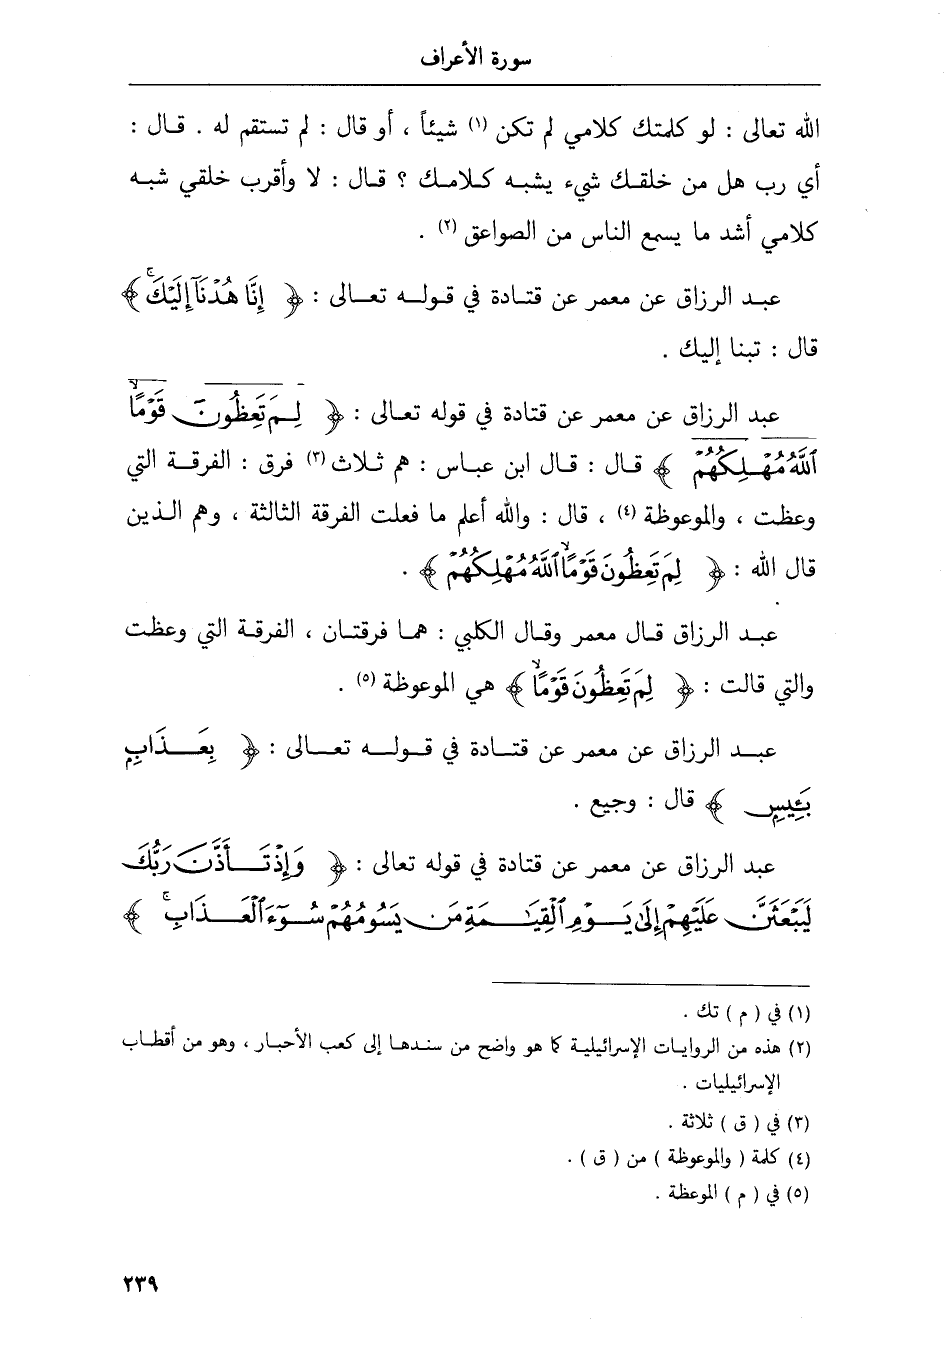 سورة الأعراف
الله تعالى : لو كلمتك كلامي لم تكن (١) شيئاً ، أو قال : لم تستقم له . قال :
أي رب هل من خلقك شيء يشبه كلامك ؟ قال : لا وأقرب خلقي شبه
كلامي أشد ما يسمع الناس من الصواعق (٢) .
عبد الرزاق عن معمر عن قتادة في قوله تعالى : ﴿ إِنَّا هُدْنَآ إِلَيْكَ ۚ ﴾
قال : تبنا إليك .
عبد الرزاق عن معمر عن قتادة في قوله تعالى : ﴿ لِمَ تَعِظُونَ قَوْمًا ۙ
ٱللَّهُ مُهْلِكُهُمْ ﴾ قال : قال ابن عباس : هم ثلاث (٣) فرق : الفرقة التي
وعظت ، والموعوظة (٤) ، قال : والله أعلم ما فعلت الفرقة الثالثة ، وهم الذين
قال الله : ﴿ لِمَ تَعِظُونَ قَوْمًا ۙ ٱللَّهُ مُهْلِكُهُمْ ﴾ .
عبد الرزاق قال معمر وقال الكلبي : هما فرقتان ، الفرقة التي وعظت
والتي قالت : ﴿ لِمَ تَعِظُونَ قَوْمًا ۙ ﴾ هي الموعوظة (٥) .
عبد الرزاق عن معمر عن قتادة في قوله تعالى : ﴿ بِعَذَابِۭ
بَـِٔيسٍ ﴾ قال : وجيع .
عبد الرزاق عن معمر عن قتادة في قوله تعالى : ﴿ وَإِذْ تَأَذَّنَ رَبُّكَ
لَيَبْعَثَنَّ عَلَيْهِمْ إِلَىٰ يَوْمِ ٱلْقِيَـٰمَةِ مَن يَسُومُهُمْ سُوٓءَ ٱلْعَذَابِ ۚ ﴾
(١) في ( م ) تك .
(٢) هذه من الروايات الإسرائيلية كما هو واضح من سندها إلى كعب الأحبار ، وهو من أقطاب
الإسرائيليات .
(٣) في ( ق ) ثلاثة .
(٤) كلمة ( والموعوظة ) من ( ق ) .
(٥) في ( م ) الموعظة .
٢٣٩